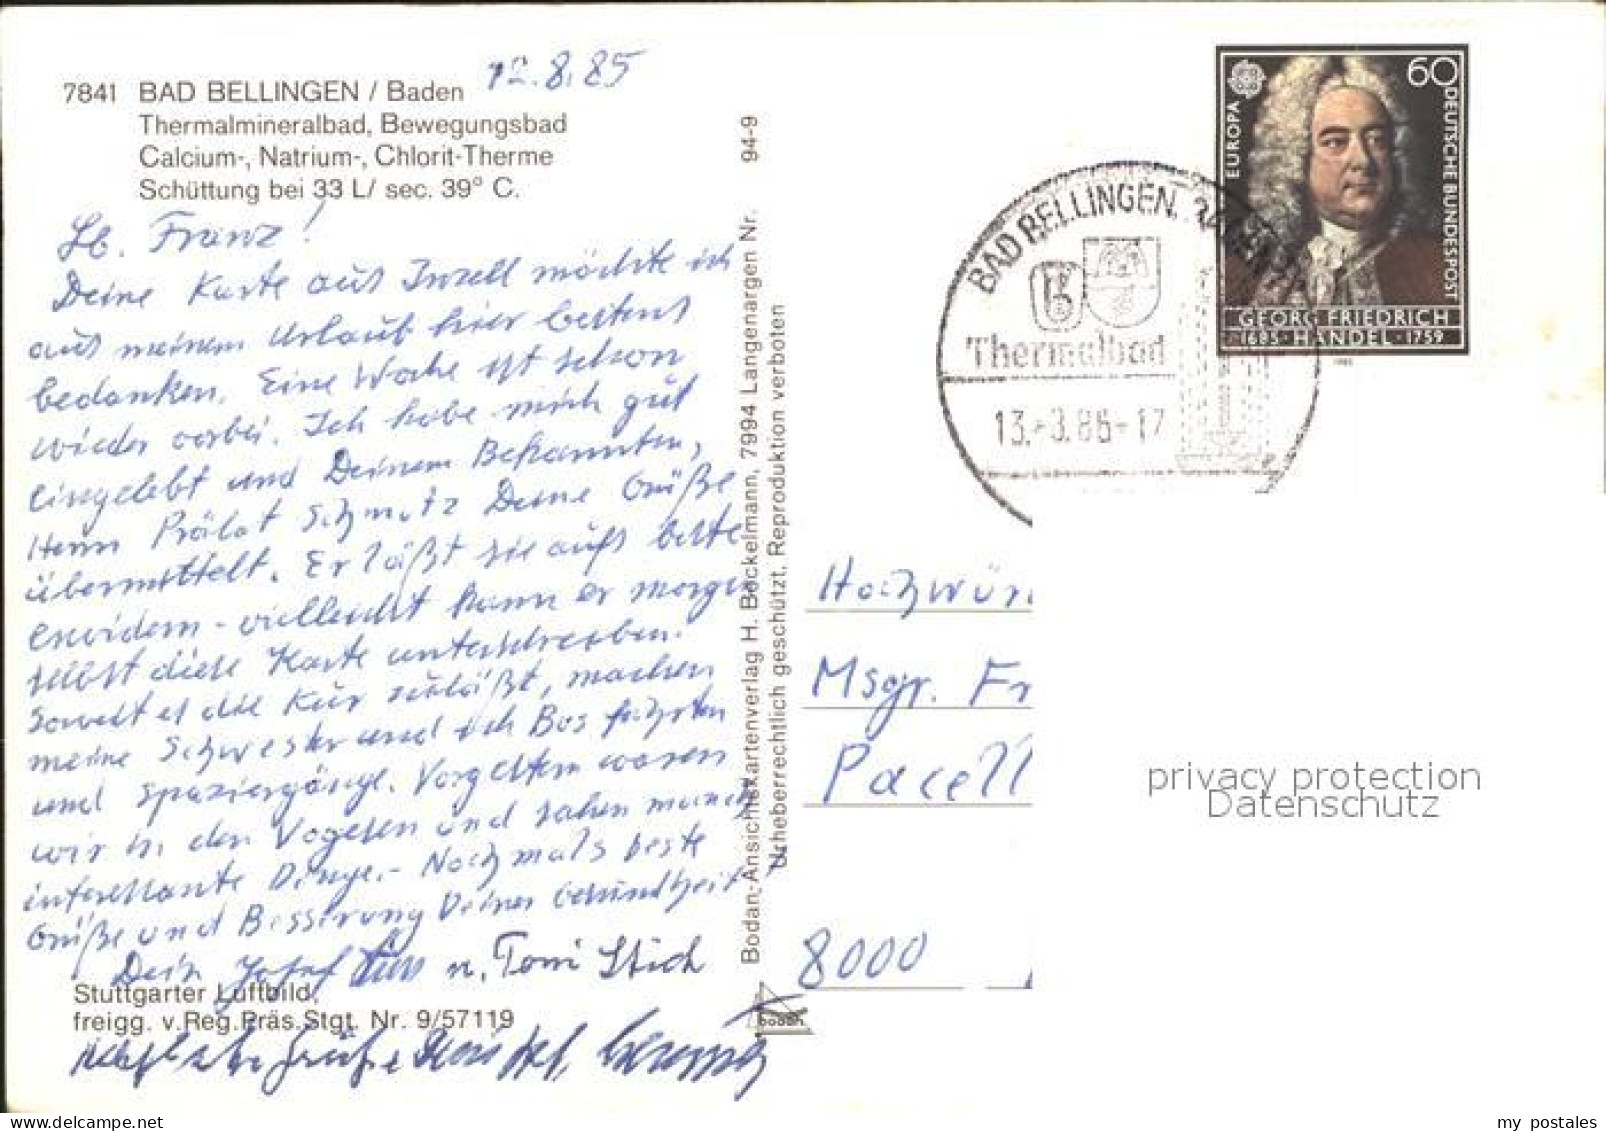 12.8.85
7841 BAD BELLINGEN / Baden
Thermalmineralbad, Bewegungsbad
Calcium-, Natrium-, Chlorit-Therme
Schüttung bei 33 L/ sec. 39° C.
Lb. Franz!
Deine Karte aus Inzell möchte ich
aus meinem Urlaub hier bestens
bedanken. Eine Woche ist schon
wieder vorbei. Ich habe mich gut
eingelebt und Deinem Bekannten,
Herrn Prälat Schmutz Deine Grüße
übermittelt. Er läßt sie aufs beste
erwidern - vielleicht kann er morgen
selbst diese Karte unterschreiben.
Soweit es die Kur zuläßt, machen
meine Schwester und ich Bus fahrten
und Spaziergänge. Vorgestern waren
wir in den Vogesen und sahen manch
interessante Dinge. - Nochmals beste
Grüße und Besserung Deiner Gesundheit
Dein Josef u. Toni Stich
Stuttgarter Luftbild,
freigg. v.Reg.Präs.Stgt. Nr. 9/57119
Grüße
Bodan-Ansichtskartenverlag H. Bockelmann, 7994 Langenargen Nr. 94-9
Urheberrechtlich geschützt, Reproduktion verboten
bodan
BAD BELLINGEN
Thermalbad
EUROPA
60
DEUTSCHE BUNDESPOST
GEORG FRIEDRICH
1685 · HÄNDEL · 1759
Hochwür
Msgr. Fr
Pacell
8000
privacy protection
Datenschutz
my postales